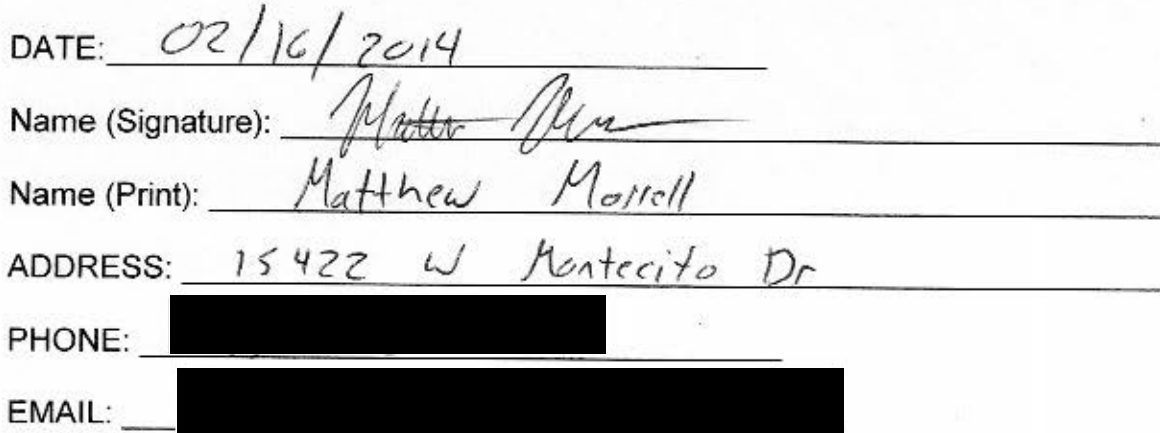 DATE: 02/16/2014
Name (Signature):
Name (Print): Matthew Morrell
ADDRESS: 15422 W Montecito Dr
PHONE:
EMAIL: